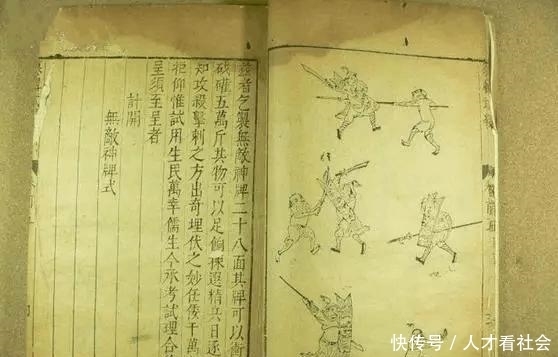 玆者乞製無敵神牌二十八面其牌可以衝
五萬斤其物可以足餉揀選精兵日逐
知攻殺擊刺之方出奇埋伏之妙任倭千萬
拒仰惟試用生民萬幸儒生今承考試理合
呈須至呈者
計開
無敵神牌式
快传号 / 人才看社会